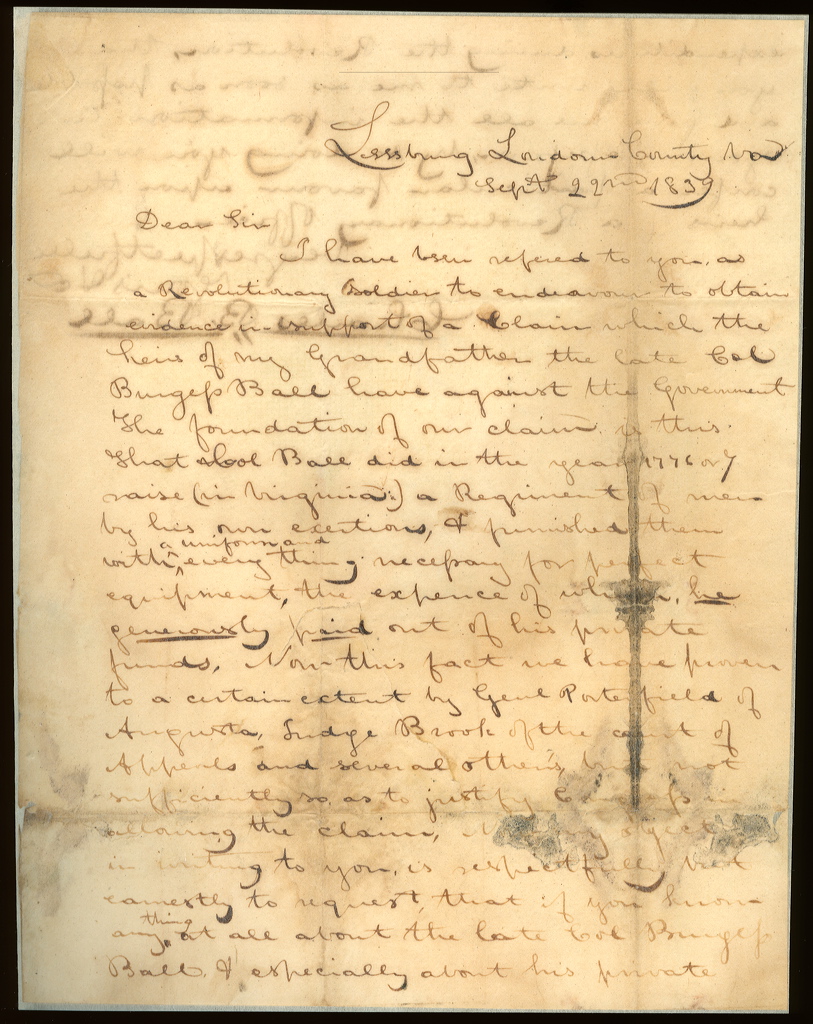 Leesburg Loudoun County Va
Sept 22nd 1839
Dear Sir
I have been refered to you, as
a Revolutionary Soldier to endeavour to obtain
evidence in support of a Claim which the
heirs of my Grandfather the late Col
Burgess Ball have against the Government
The foundation of our claim is this.
That Col Ball did in the year 1776 or 7
raise (in Virginia) a Regiment of men
by his own exertions, & furnished them
with a uniform and every thing necessary for perfect
equipment, the expence of which, he
generously paid out of his private
funds, Now this fact we have proven
to a certain extent by Genl Porterfield of
Augusta, Judge Brook of the court of
Appeals and several others, but not
sufficiently so, as to justify Congress in
allowing the claim, My object
in writing to you, is respectfully but
earnestly to request, that if you know
any thing at all about the late Col Burgess
Ball, & especially about his private